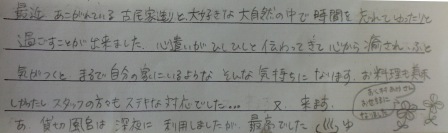 最近 あこがれている 古民家造りと、大好きな大自然の中で時間を忘れてゆったりと
過ごすことが出来ました。心遣いがひしひしと伝わってきて心から癒され、ふと
気がつくと、まるで自分の家にいるような そんな気持ちになります。お料理も美味
しかったし スタッフの方々もステキな対応でした… 又、来ます。
あ、貸切風呂は 深夜に 利用しましたが、最高でした